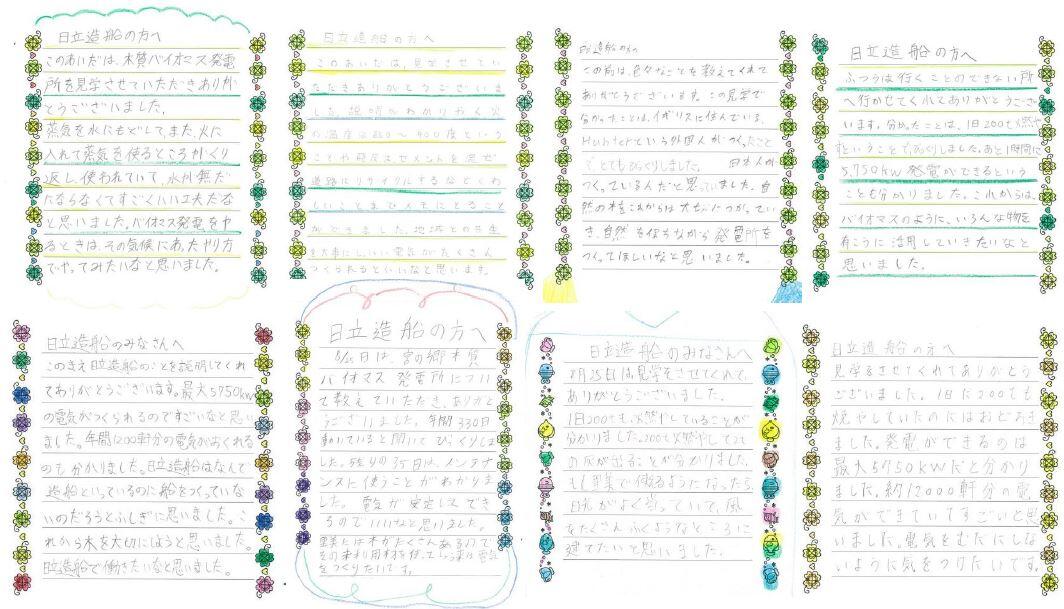 日立造船の方へ
このあいだは、木質バイオマス発電
所を見学させていただきありが
とうございました。
蒸気を水にもどして、また、火に
入れて蒸気を使るところがくり
返し使われていて、水が無だ
にならなくてすごくいい工夫だな
と思いました。バイオマス発電をや
るときは、その気候にあたやり方
でやってみたいなと思いました。
日立造船の方へ
このあいだは、見学させてい
ただきありがとうございま
した。説明がわかりやすく火
の温度は850〜900度という
ことや
道路にリサイクルするなどくわ
しい
ができました。地域との共生
を大事にし、いい電気がたくさん
つくられるといいなと思います。
日立造船の方へ
この前は、色々なことを教えてくれて
ありがとうございます。この見学で
分かったことは、イギリスに住んでいる、
Hunterという外国人がつくったこと
でとてもびっくりしました。日本人が
つくっているんだと思っていました。自
然の木をこれからは大せつにつかってい
き、自然を保ちながら発電所を
つくってほしいなと思いました。
日立造船の方へ
ふつうは行くことのできない所
へ行かせてくれてありがとうござ
います。分かったことは、1日200tも燃や
すということでびっくりしました。あと1時間に
5,750kW発電ができるという
ことも分かりました。これからは、
バイオマスのように、いろんな物を
有こうに活用していきたいなと
思いました。
日立造船のみなさんへ
このまえ日立造船のことを説明してくれ
てありがとうございます。最大5750kw
の電気がつくられるのですごいなと思い
ました。年間12000軒分の電気がおくれる
のも分かりました。日立造船はなんで
造船といっているのに船をつくっていな
いのだろうとふしぎに思いました。こ
れから木を大切にしようと思いました。
日立造船で働きたいなと思いました。
日立造船の方へ
日は、宮の郷木質
バイオマス発電所につい
て教えていただき、ありがと
うございました。年間330日
動いていると聞いてびっくりしま
した。残りの35日は、メンテナ
ンスに使うことがわかりま
した。電気が安定してでき
るのでいいなと思いました。
をつくりたいです。
日立造船のみなさんへ
8月25日は見学をさせてくれて、
ありがとうございました。
1日200tも火燃やしていることが
分かりました。200t火燃やしてたく
の灰が出ることが分かりました。
もし授業で働るようになったら、
日光がよく当っていて風
もたくさんふくようなところに
建てたいと思いました。
日立造船の方へ
見学をさせてくれてありがとう
ございました。1日に200tも
焼やしていたのにはおどろき
ました。発電ができるのは
最大5750kWだと分かり
ました。約12000軒分の電
気ができていてすごいと思
いました。電気をむだにしな
いように気をつけたいです。